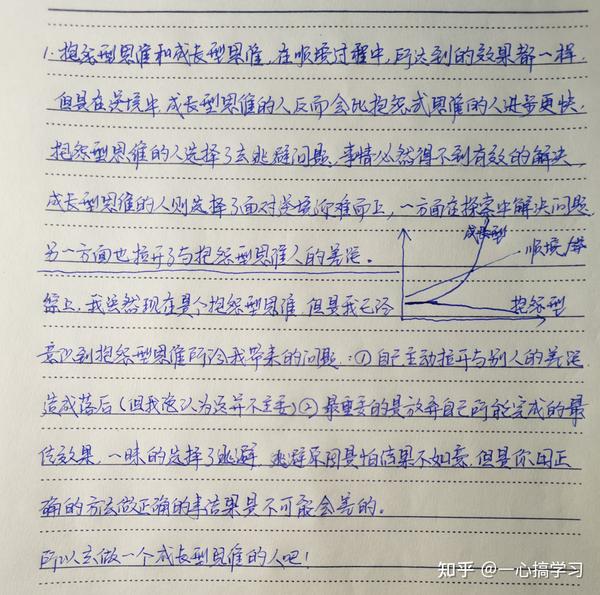 1. 抱怨型思维和成长型思维，在顺境过程中，所达到的效果都一样.
但是在逆境中,成长型思维的人反而会比抱怨式思维的人进步更快.
抱怨型思维的人选择了去逃避问题.事情必然得不到有效的解决,
成长型思维的人则选择了面对逆境迎难而上，一方面在探索中解决问题.
另一方面也拉开了与抱怨型思维人的差距。
成长型
顺境/
抱怨型
综上,我虽然现在是个抱怨型思维,但是我已经
意识到抱怨型思维所给我带来的问题:①自己主动拉开与别人的差距
造成落后(但我总认为这并不重要)②最重要的是放弃自己所能完成的最
佳效果,一昧的选择了逃避.逃避原因是怕结果不如意,但是你用正
确的方法做正确的事结果是不可能会差的。
所以去做一个成长型思维的人吧!
知乎 @一心搞学习